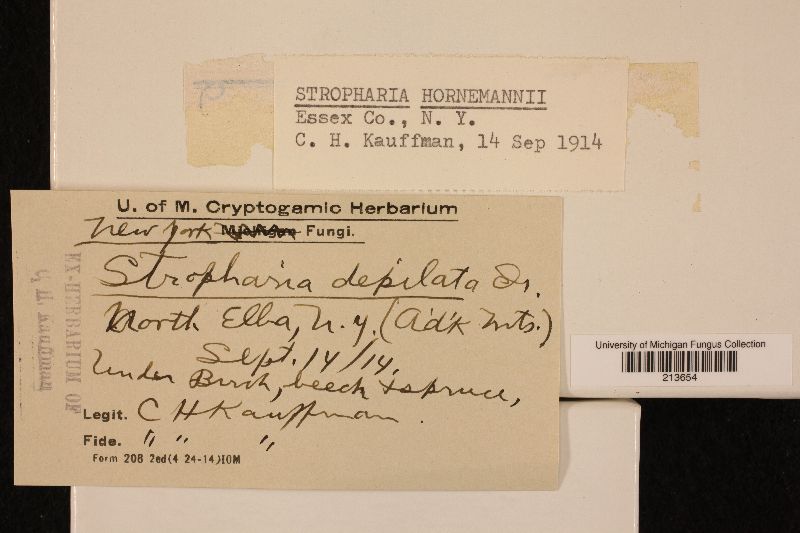 STROPHARIA HORNEMANNII
Essex Co., N. Y.
C. H. Kauffman, 14 Sep 1914
U. of M. Cryptogamic Herbarium
New York Michigan Fungi.
Stropharia depilata Fr.
North Elba, N.Y. (Ad'k Mts.)
Sept. 14/14.
Under Birch, beech & spruce,
Legit. C H Kauffman.
Fide. " " "
Form 208 2ed(4 24-14)10M
EX-HERBARIUM OF
C. H. Kauffman
University of Michigan Fungus Collection
213654